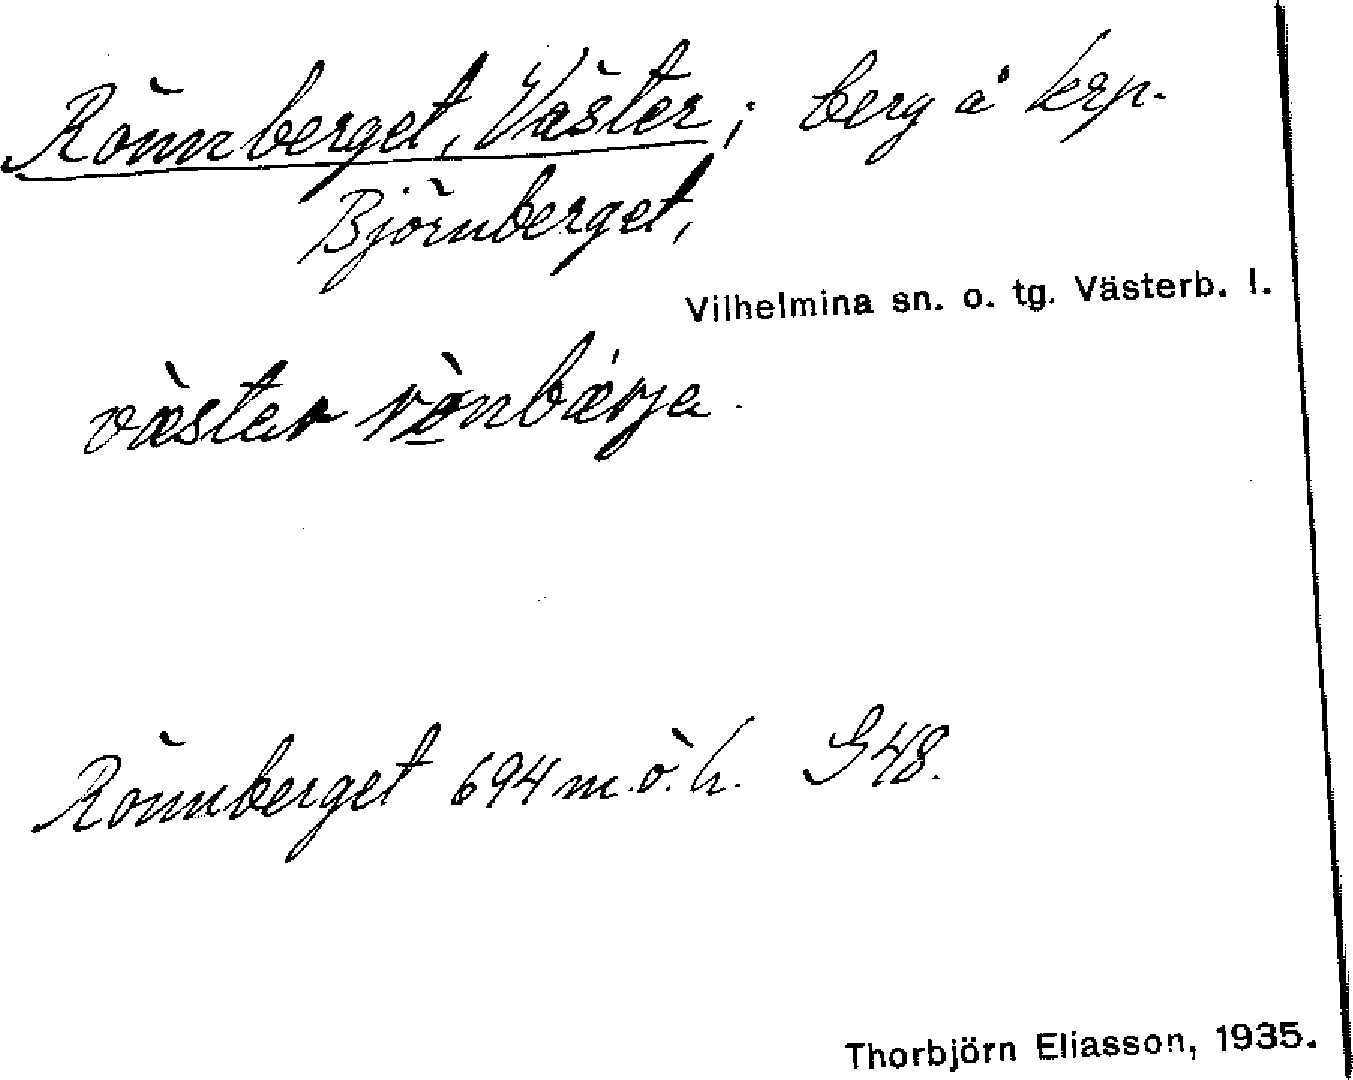 Rönnberget, Väster; berg å krp.
Björnberget,
Vilhelmina sn. o. tg. Västerb. l.
västar rönbärja.
Rönnberget 694 m. ö. h. G48.
Thorbjörn Eliasson, 1935.